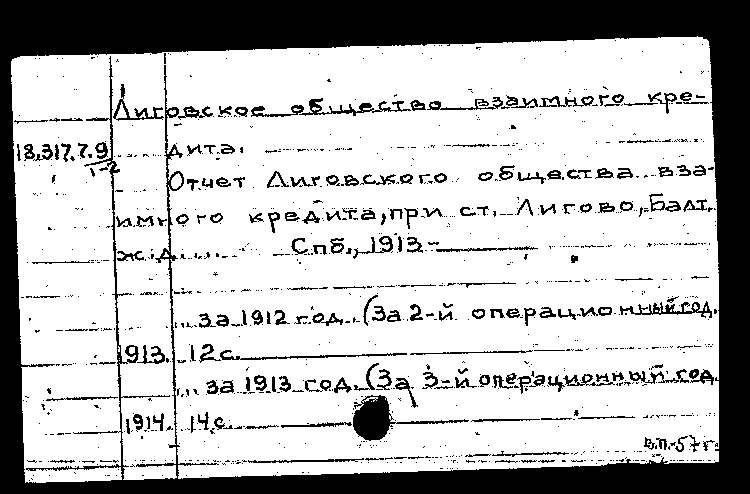 Лиговское общество взаимного кре-
18.317.7.9 дита.
1-2
Отчет Лиговского общества вза-
имного кредита, при ст. Лигово, Балт.
ж.д.... Спб., 1913-
... за 1912 год. (За 2-й операционный год.
1913. 12 с.
... за 1913 год. (За 3-й операционный год
1914. 14 с.
в.п.-57 г.